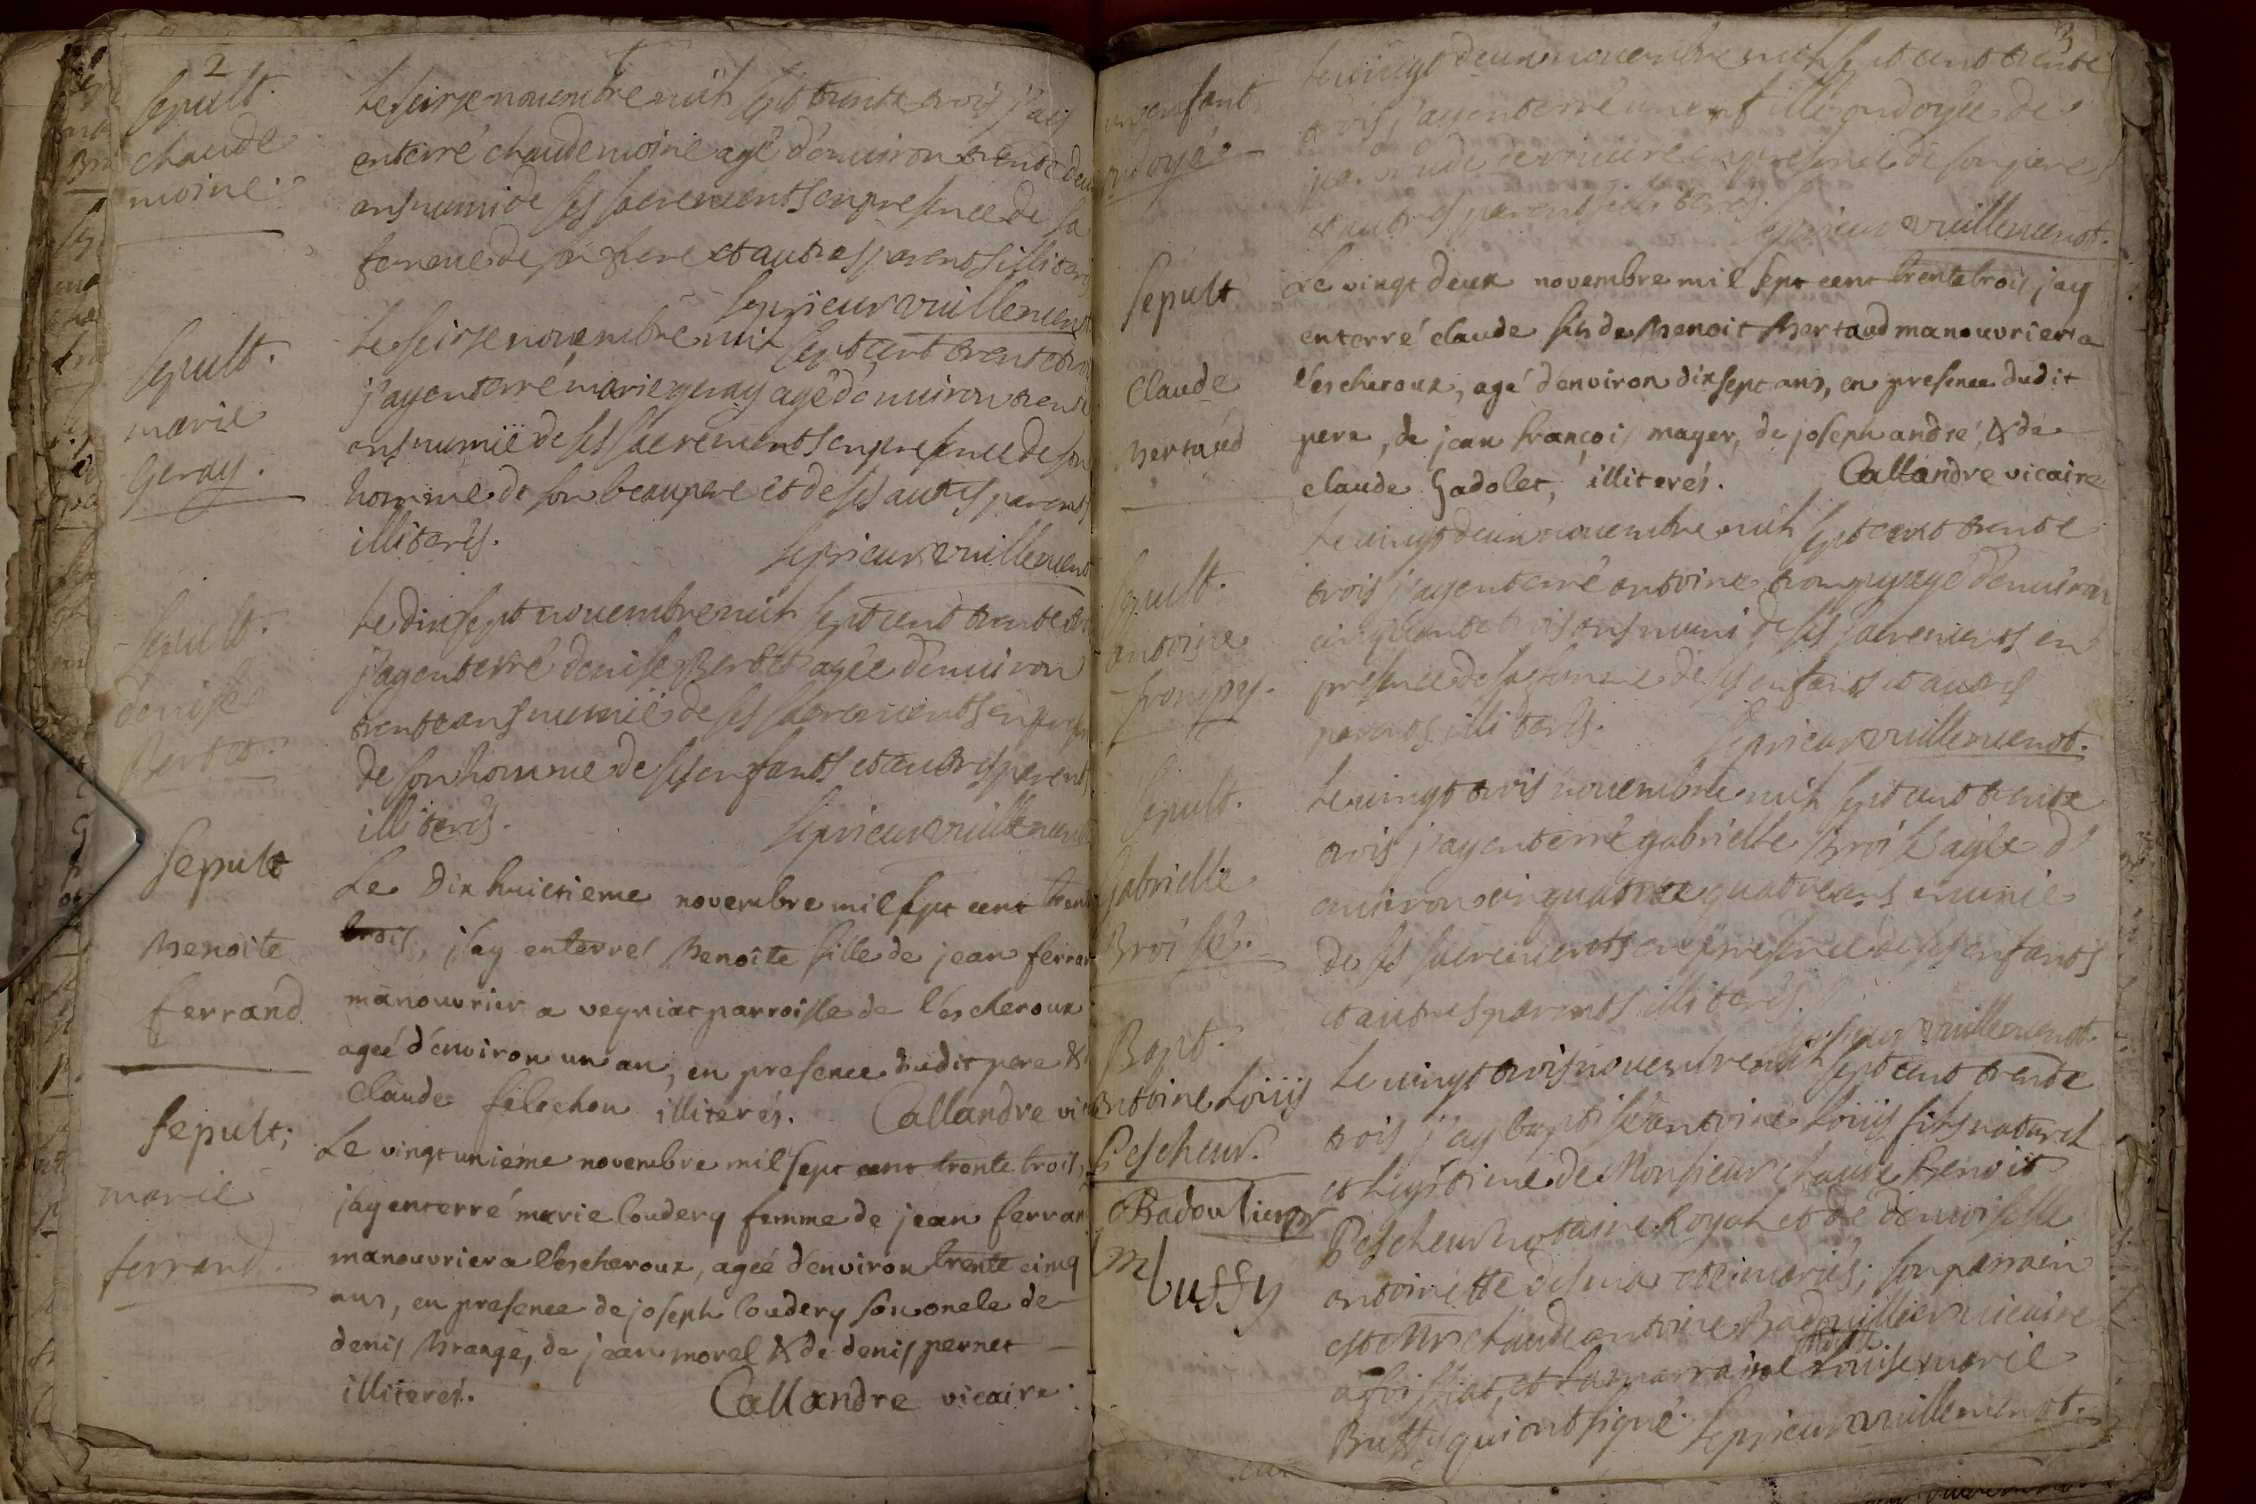 2
Sepult.
claude
moine.
Le seirse novembre mil sept trente trois j'ay
enterré claude moine agé d'environ trente deux
ans muni de ses sacrements en presence de sa
femme de son frere et autres parents illiteré
le prieur vuillemenot
Sepult.
marie
geray.
Le seirse novembre mil sept cent trente trois
j'ay enterré marie geray agé d'environ trente
ans munïe de ses sacrements en presence de son
homme de son beaupere et de ses autres parents
illiterés.
le prieur vuillemenot
Sepult.
denise
Bertet.
Le dixsept novembre mil sept cent trente trois
j'ay enterré denise Bertet agée d'environ
trente ans munië de ses sacrements en presence
de son homme de ses enfants et autres parents
illiterés.
le prieur vuillemenot
Sepult
Benoite
ferrand
Le Dix huictieme novembre mil sept cent trente
trois, j'ay enterré Benoite fille de jean ferrand
manouvrier a veyriat parroisse de l'escheroux
ageé d'environ un an, en presence dudit pere &
Claude felechon illiterés. Callandre vicaire
Sepult;
marie
ferrand.
Le vingt unieme novembre mil sept cent trente trois,
j'ay enterré marie loudery femme de jean ferrand
manouvrier a l'escheroux, ageé d'environ trente cinq
ans, en presence de joseph loudery son oncle de
denis Brangé, de jean morel & de denis pernet
illiterés. Callandre vicaire.
3
un enfant
ondoyé
Le vingt deux novembre mil sept cent trente
trois j'ay enterré un enf fille ondoyée de
en presence de son pere
et autres parents illiterés.
le prieur vuillemenot.
Sepult
Claude
Bertaud
Le vingt deux novembre mil sept cent trente trois j'ay
enterré claude fils de Benoit Bertaud manouvrier a
l'escheroux, agé d'environ dixsept ans, en presence dudit
pere, de jean françois mayer, de joseph andré, & de
claude Gadolet, illiterés. Callandre vicaire
Sepult.
antoine
trompy.
Le vingt deux novembre mil sept cent trente
trois j'ay enterré antoine trompy agé d'environ
cinquante trois ans muni de ses sacrements en
presence de sa femme de ses enfants et autres
parents illiterés. le prieur vuillemenot.
Sepult.
Gabrielle
Broisé.
Le vingt trois novembre mil sept cent trente
trois j'ay enterré gabrielle Broisé agée d'
environ cinquante quatre ans munie
de ses sacrements en presence de ses enfants
et autres parents illiterés.
le prieur vuillemenot.
Bapt.
antoine Loüis
Pescheur.
Le vingt trois novembre mil sept cent trente
trois j'ay baptisé antoine Loüis fils naturel
et legitime de Monsieur claude Benoit
Pescheur notaire Royal et de demoiselle
antoinette mariés; son parrain
est Mr claude antoine Badoullier vicaire
a foissiat, et la marraine louise marie
Buffy qui ont signé. le prieur vuillemenot.
Badoulier
m buffy